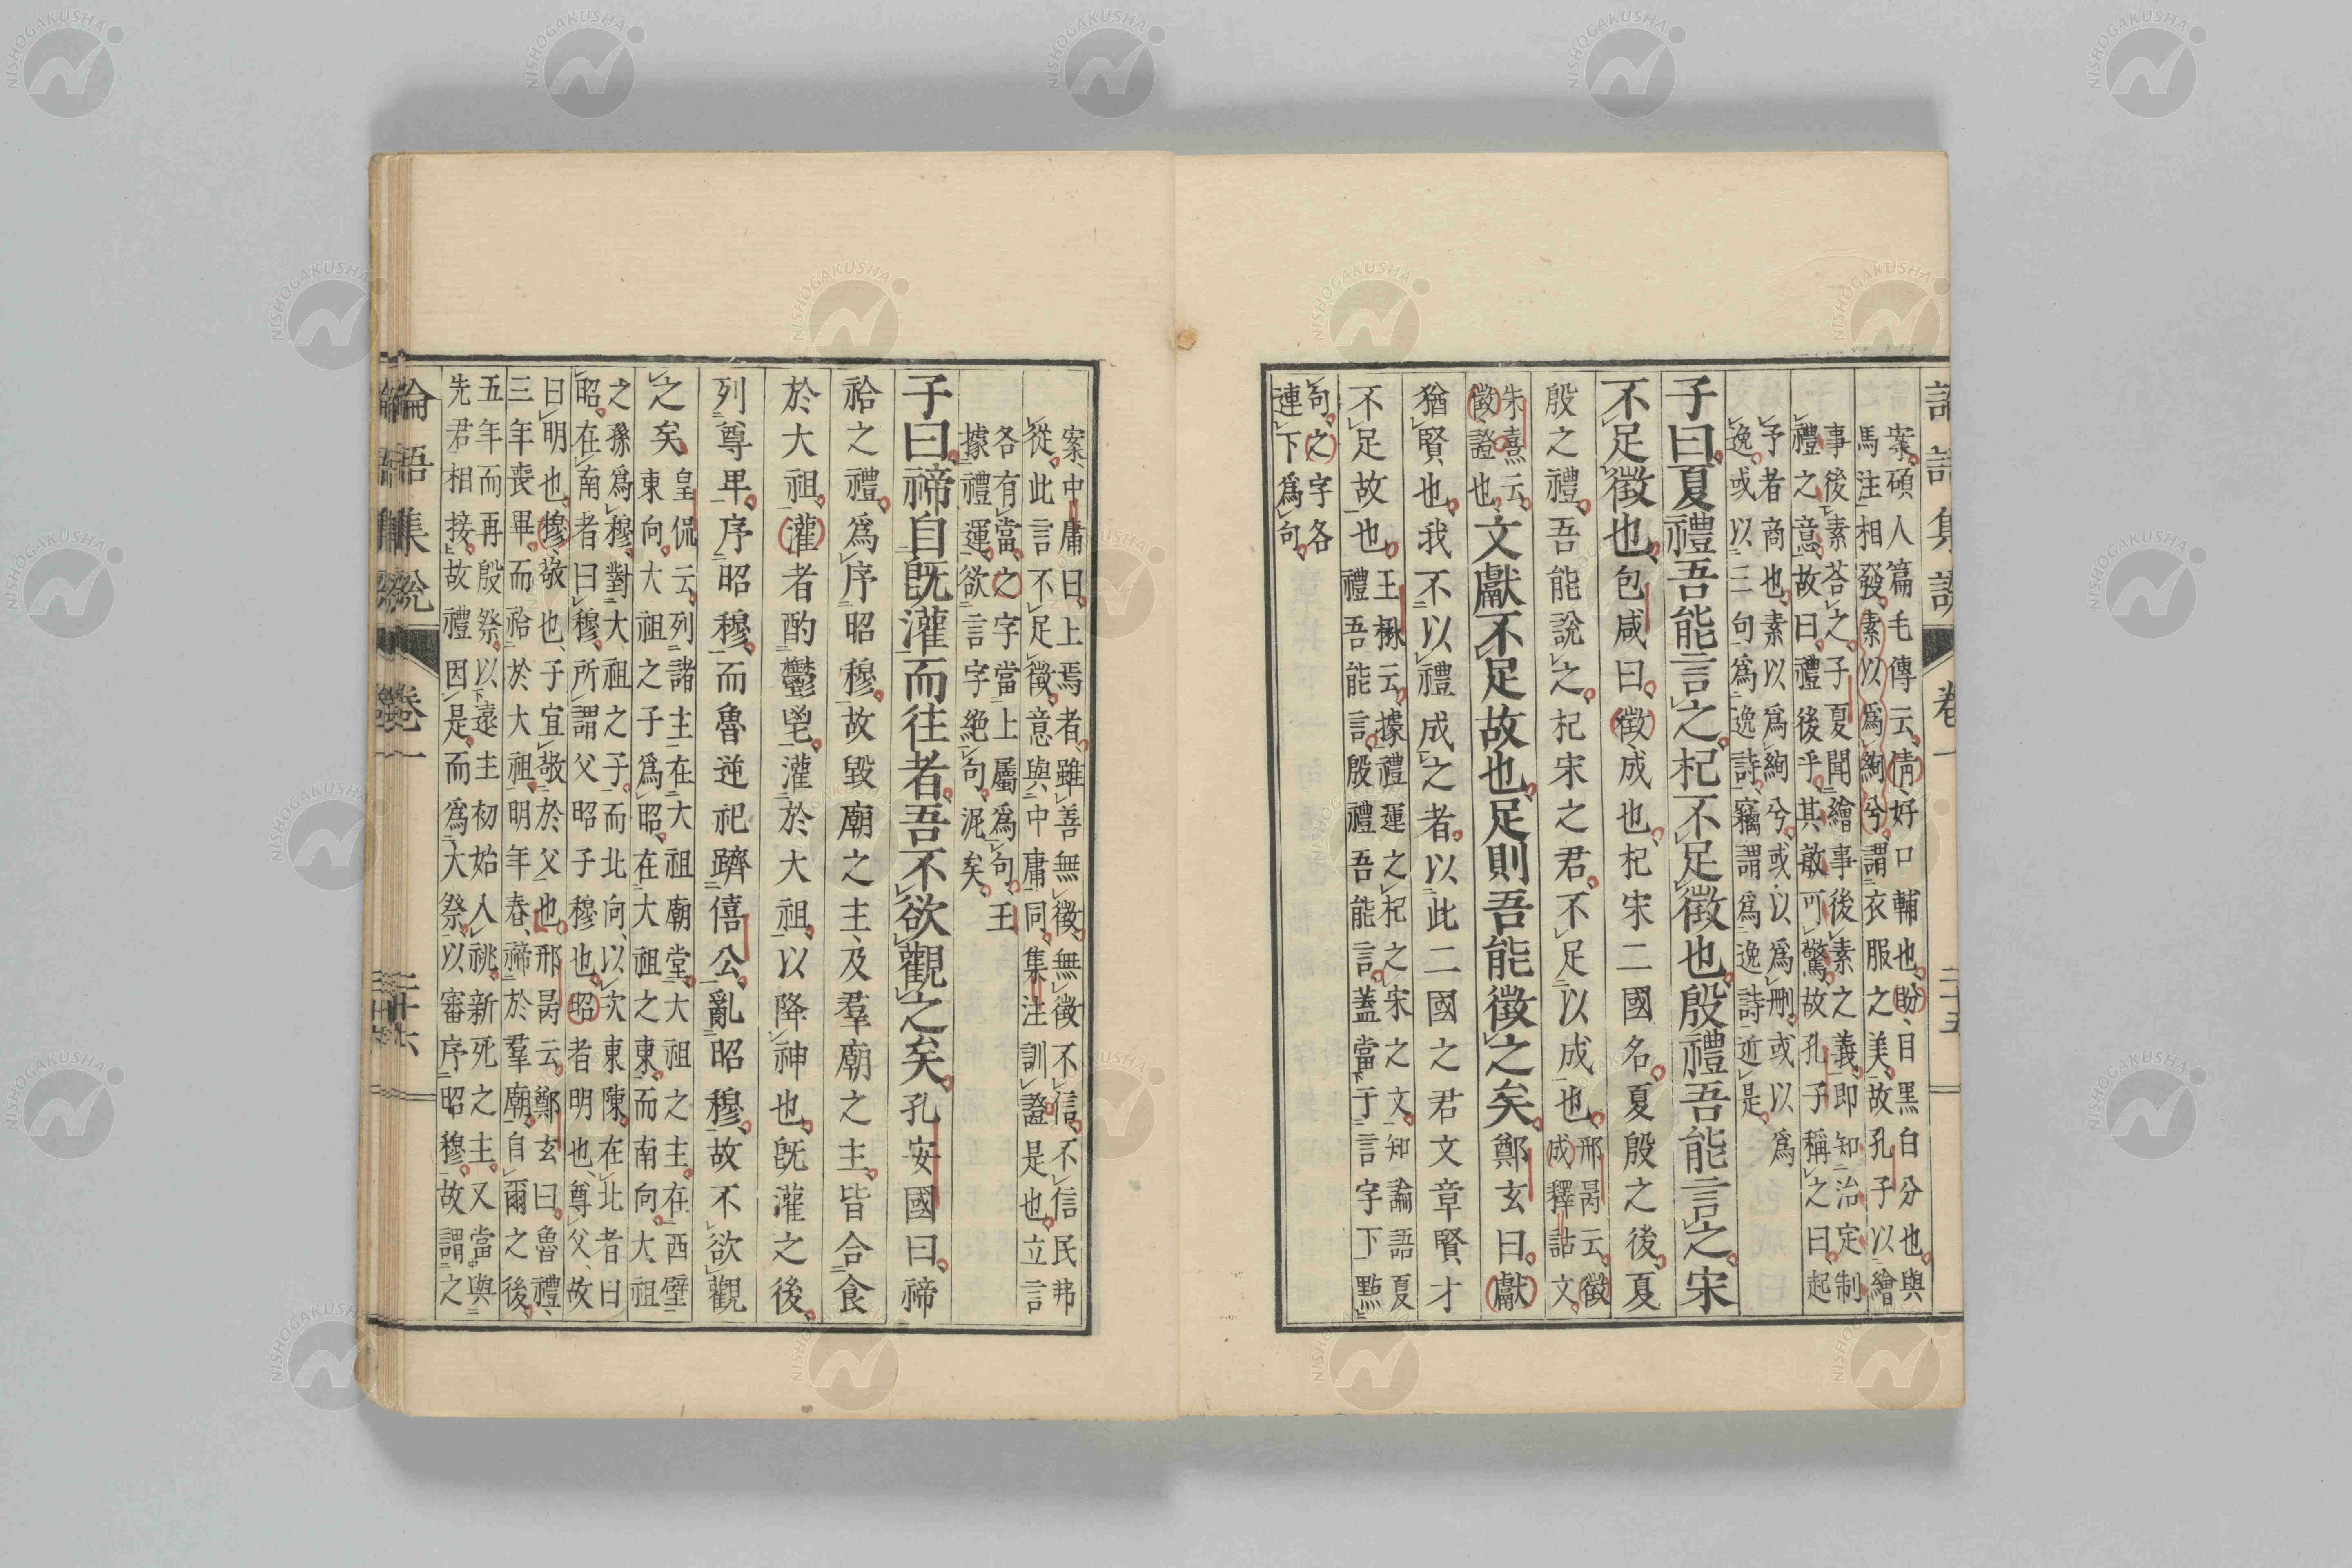 論語集說 卷一 二十五
案、碩人篇毛傳云、倩、好口輔也、盼、目黑白分也、與
馬注相發、素以爲絢兮、謂衣服之美、故孔子以繪
事後素荅之、子夏聞繪事後素之義、即知治定制
禮之意、故曰、禮後乎、其敏可驚、故孔子稱之曰、起
予者商也、素以爲絢兮、或以爲刪、或以爲
逸、或以三句爲逸詩、竊謂爲逸詩近是、
子曰、夏禮吾能言之、杞不足徵也、殷禮吾能言之、宋
不足徵也、包咸曰、徵、成也、杞宋二國名、夏殷之後、夏
殷之禮、吾能說之、杞宋之君、不足以成也、邢昺云、徵
成、釋詁文、
朱熹云、
徵、證也、文獻不足故也、足則吾能徵之矣、鄭玄曰、獻
猶賢也、我不以禮成之者、以此二國之君文章賢才
不足故也、王楙云、據禮運之杞之宋之文、知論語夏
禮吾能言、殷禮吾能言、蓋當于言字下點
句、之字各
連下爲句、
案、中庸曰、上焉者、雖善無徵、無徵不信、不信民弗
從、此言不足徵、意與中庸同、集注訓證是也、立言
各有當、之字當上屬爲句、王
據禮運、欲言字絕句、泥矣、
子曰、禘自既灌而往者、吾不欲觀之矣、孔安國曰、禘
祫之禮、爲序昭穆、故毀廟之主、及羣廟之主、皆合食
於大祖、灌者酌鬱鬯、灌於大祖、以降神也、既灌之後、
列尊卑、序昭穆、而魯逆祀躋僖公、亂昭穆、故不欲觀
之矣、皇侃云、列諸主在大祖廟堂、大祖之主、在西壁
東向、大祖之子爲昭、在大祖之東、而南向、大祖
之孫爲穆、對大祖之子、而北向、以次東陳、在北者曰
昭、在南者曰穆、所謂父昭子穆也、昭者明也、尊父、故
曰明也、穆、敬也、子宜敬於父也、邢昺云、鄭玄曰、魯禮、
三年喪畢、而祫於大祖、明年春、禘於羣廟、自爾之後、
五年而再殷祭、以遠主初始入祧、新死之主、又當與
先君相接、故禮因是、而爲大祭、以審序昭穆、故謂之
論語集說 卷一 二十六